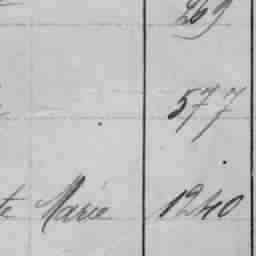 269
577
te Marie 1240